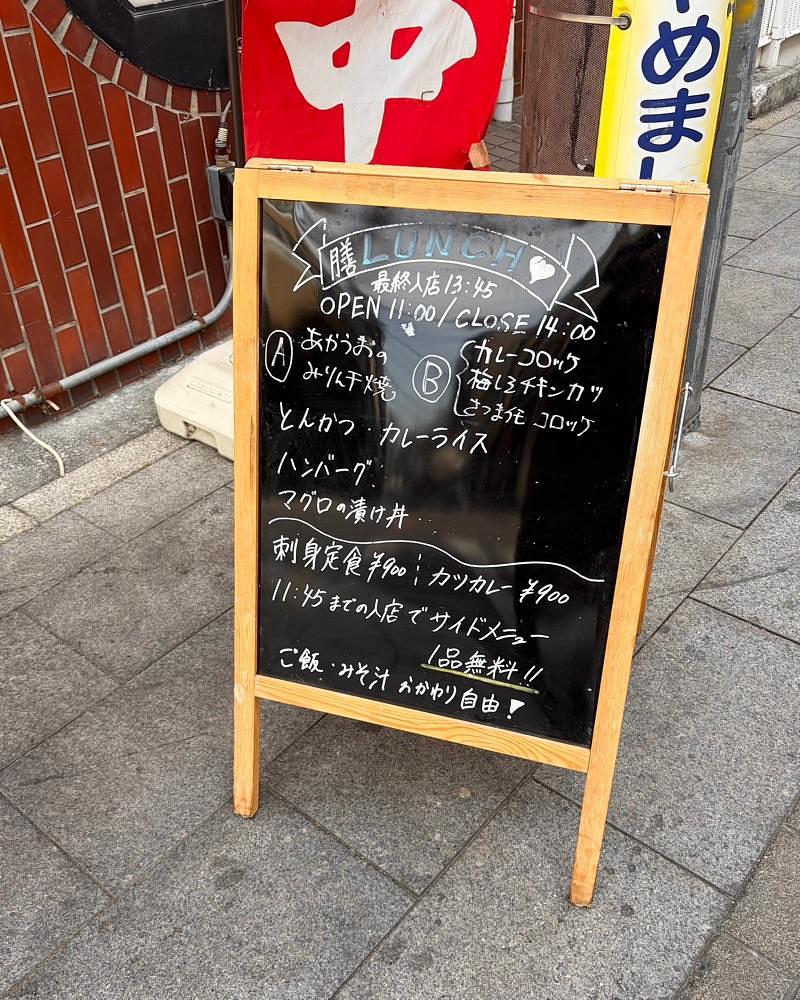 中
めまし
膳 LUNCH
最終入店13:45
OPEN 11:00/CLOSE 14:00
Ⓐ あかうおの
みりん干焼
Ⓑ カレーコロッケ
梅しそチキンカツ
さつま芋コロッケ
とんかつ・カレーライス
ハンバーグ
マグロの漬け丼
刺身定食¥900 カツカレー¥900
11:45までの入店でサイドメニュー
1品無料!!
ご飯・みそ汁 おかわり自由!